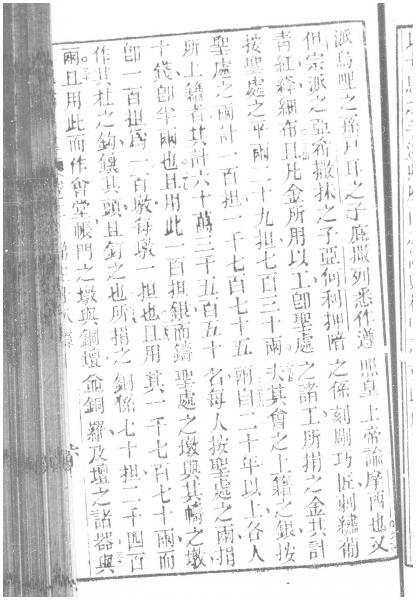 派烏哩之孫戶耳之子庇撒列悉作遵照皇上帝諭摩西也又
但宗派之亞希撒抹之子亞何利押暗之係刻劂巧匠刺繡術
青紅絳細布且凡金所用以工卽聖處之諸工所捐之金共計
按聖處之平兩二十九担七百三十兩夫其會之上籍之銀按
聖處之兩計一百担一千七百七十五兩自二十年以上各人
所上籍者共計六十萬三千五百五十名每人按聖處之兩捐
十錢卽半兩也且用此一百担銀而鑄聖處之墩與其幬之墩
卽一百担爲一百墩每墩一担也且用其一千七百七十兩而
作其柱之鈎鑲其頭且釘之也所捐之銅係七十担二千四百
兩且用此而作會堂帳門之墩與銅壇並銅羅及壇之諸器與